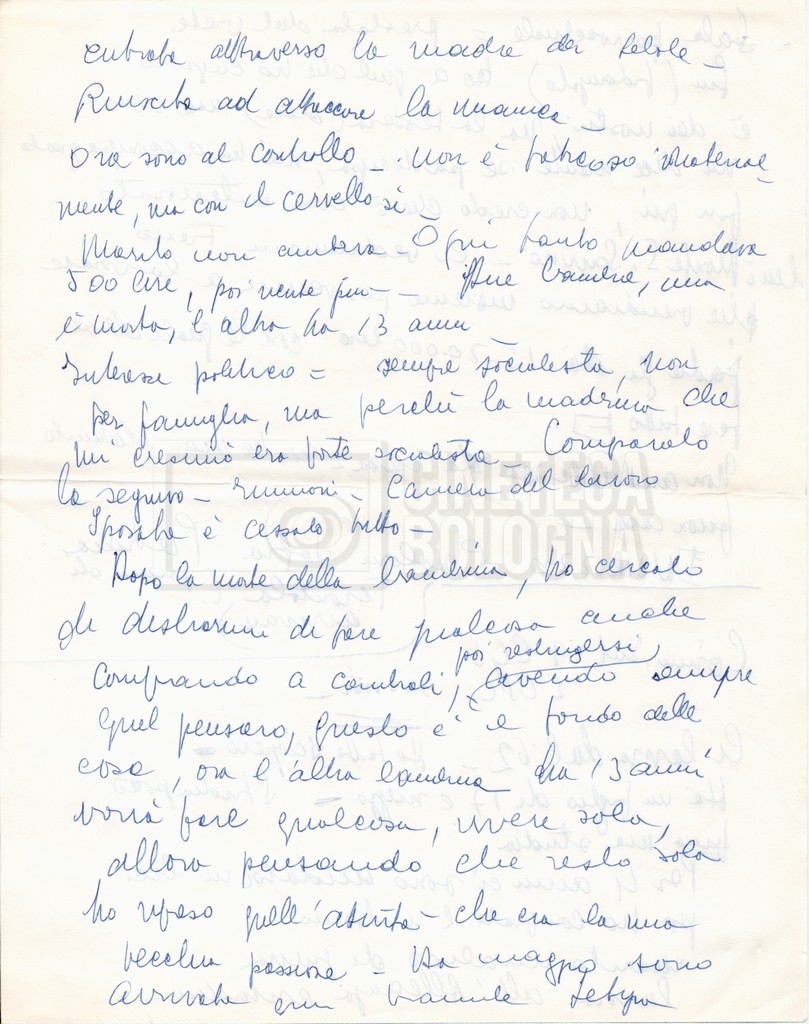 entrata attraverso la madre di
Riuscita ad attaccare la manica –
Ora sono al controllo – non è faticoso material-
mente, ma con il cervello sì
Marito non aiutava – Ogni tanto mandava
500 lire, poi niente più – Due bambine, una
è morta, l'altra ha 13 anni
Interesse politico = sempre socialista, non
per famiglia, ma perché la madrina che
mi cresimò era forte socialista – Comparato
la seguivo – riunioni – Camera del lavoro
Sposata è cessato tutto –
Dopo la morte della bambina, ho cercato
di distrarmi di fare qualcosa anche
poi restringersi,
Comprando a cambiali, avendo sempre
quel pensiero, questo è il fondo delle
cose, ora l'altra bambina ha 13 anni
vorrà fare qualcosa, vivere sola,
allora pensando che resto sola
ho ripreso quell'attività – che era la mia
vecchia passione – Ha maggio sono
arrivata qui tramite
CINETECA
BOLOGNA